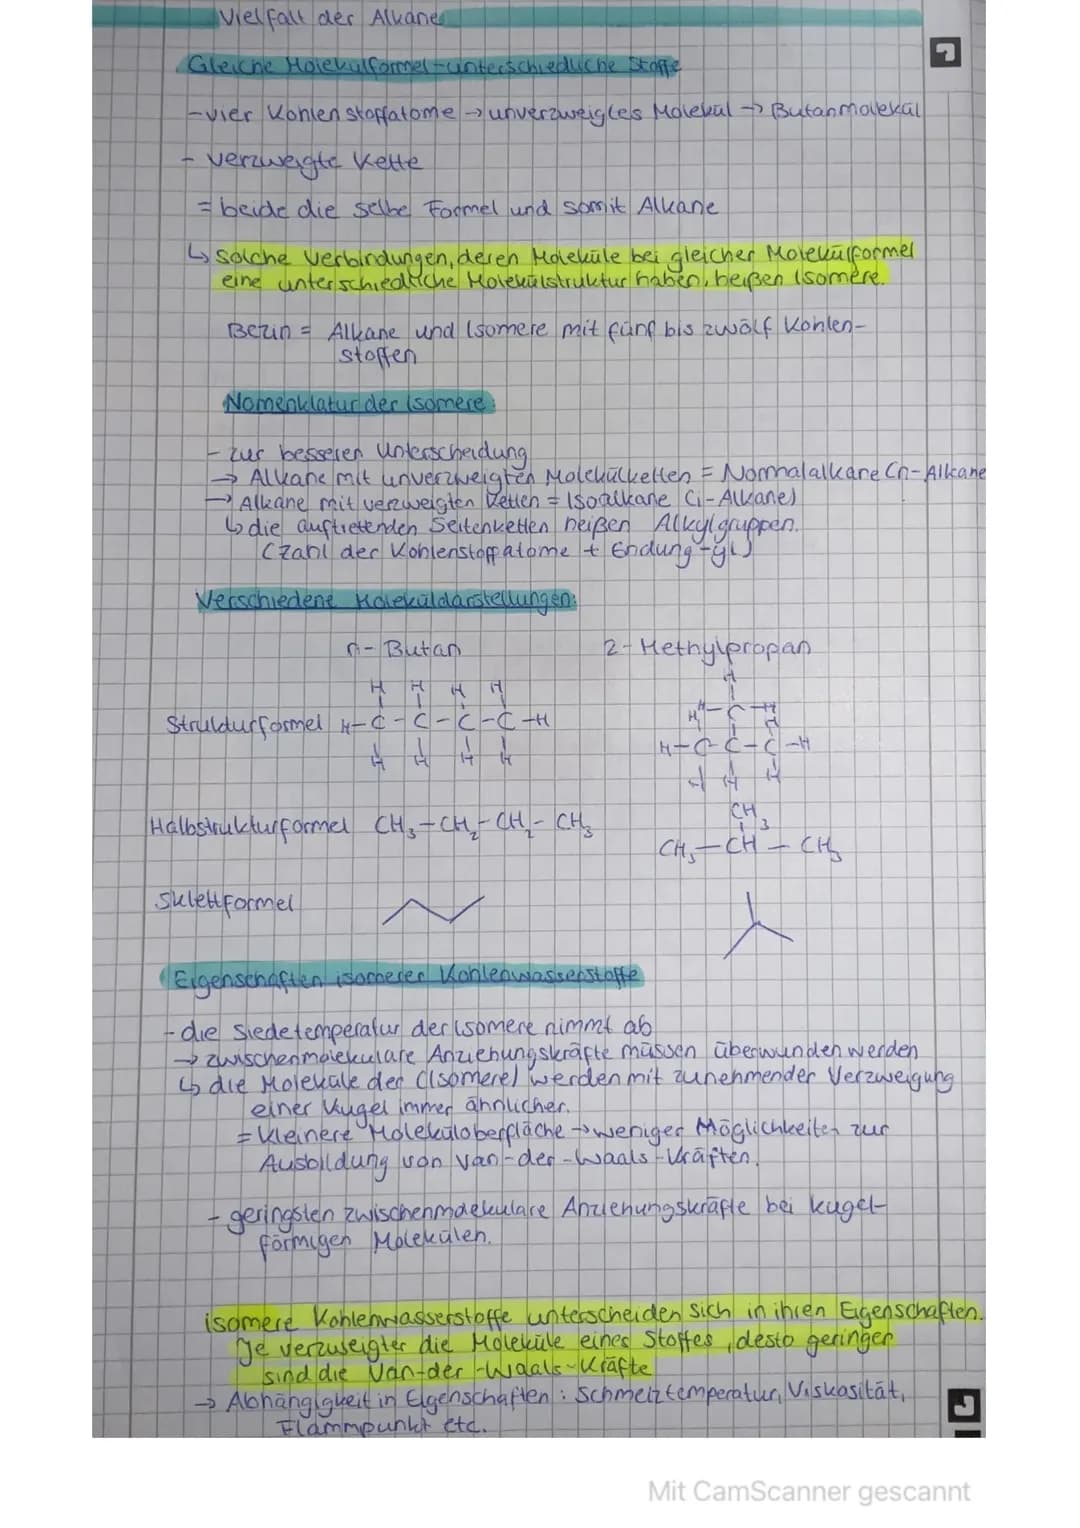 Vielfalt der Alkane
Gleiche Molekülformel - unterschiedliche Stoffe
- vier Kohlenstoffatome → unverzweigtes Molekül → Butanmolekül
- verzweigte Kette
= beide die selbe Formel und somit Alkane
↳ solche Verbindungen, deren Moleküle bei gleicher Molekülformel
eine unterschiedliche Molekülstruktur haben, heißen Isomere.
Bezin = Alkane und Isomere mit fünf bis zwölf Kohlen-
stoffen
Nomenklatur der Isomere:
- zur besseren Unterscheidung
→ Alkane mit unverzweigten Molekülketten = Normalalkane (n-Alkane
→ Alkane mit verzweigten Ketten = Isoalkane (i-Alkane)
↳ die auftretenden Seitenketten heißen Alkylgruppen.
(Zahl der Kohlenstoffatome + Endung -yl)
Verschiedene Moleküldarstellungen:
n-Butan 2-Methylpropan
H H H H H
Strukturformel H-C-C-C-C-H H-C-H
H H H H H-C-C-C-H
H H H
Halbstrukturformel CH₃-CH₂-CH₂-CH₃ CH₃
CH₃-CH-CH₃
Sklettformel
Eigenschaften isomerer Kohlenwasserstoffe
- die Siedetemperatur der Isomere nimmt ab
→ zwischenmolekulare Anziehungskräfte müssen überwunden werden
↳ die Moleküle der (Isomere) werden mit zunehmender Verzweigung
einer Kugel immer ähnlicher.
= kleinere Moleküloberfläche → weniger Möglichkeiten zur
Ausbildung von Van-der-Waals-Kräften.
- geringsten zwischenmolekulare Anziehungskräfte bei kugel-
förmigen Molekülen.
isomere Kohlenwasserstoffe unterscheiden sich in ihren Eigenschaften.
Je verzweigter die Moleküle eines Stoffes, desto geringer
sind die Van-der-Waals-Kräfte
→ Abhängigkeit in Eigenschaften: Schmelztemperatur, Viskosität,
Flammpunkt etc.
Mit CamScanner gescannt